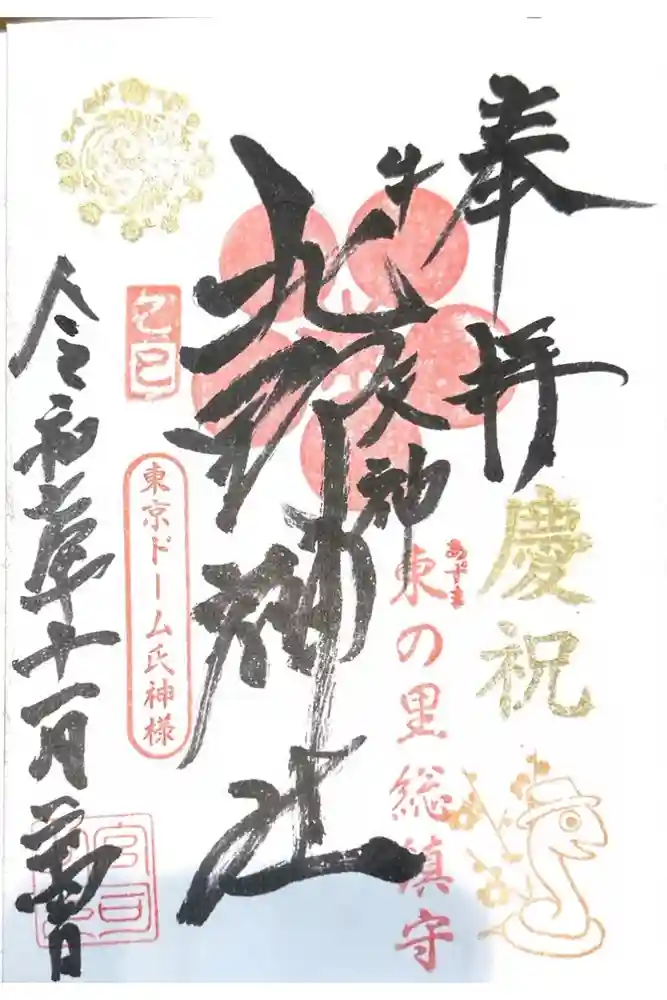 奉拝
慶祝
あずま
東の里総鎮守
牛天神
北野神社
乙巳
東京ドーム氏神様
令和七年十一月日
宮司